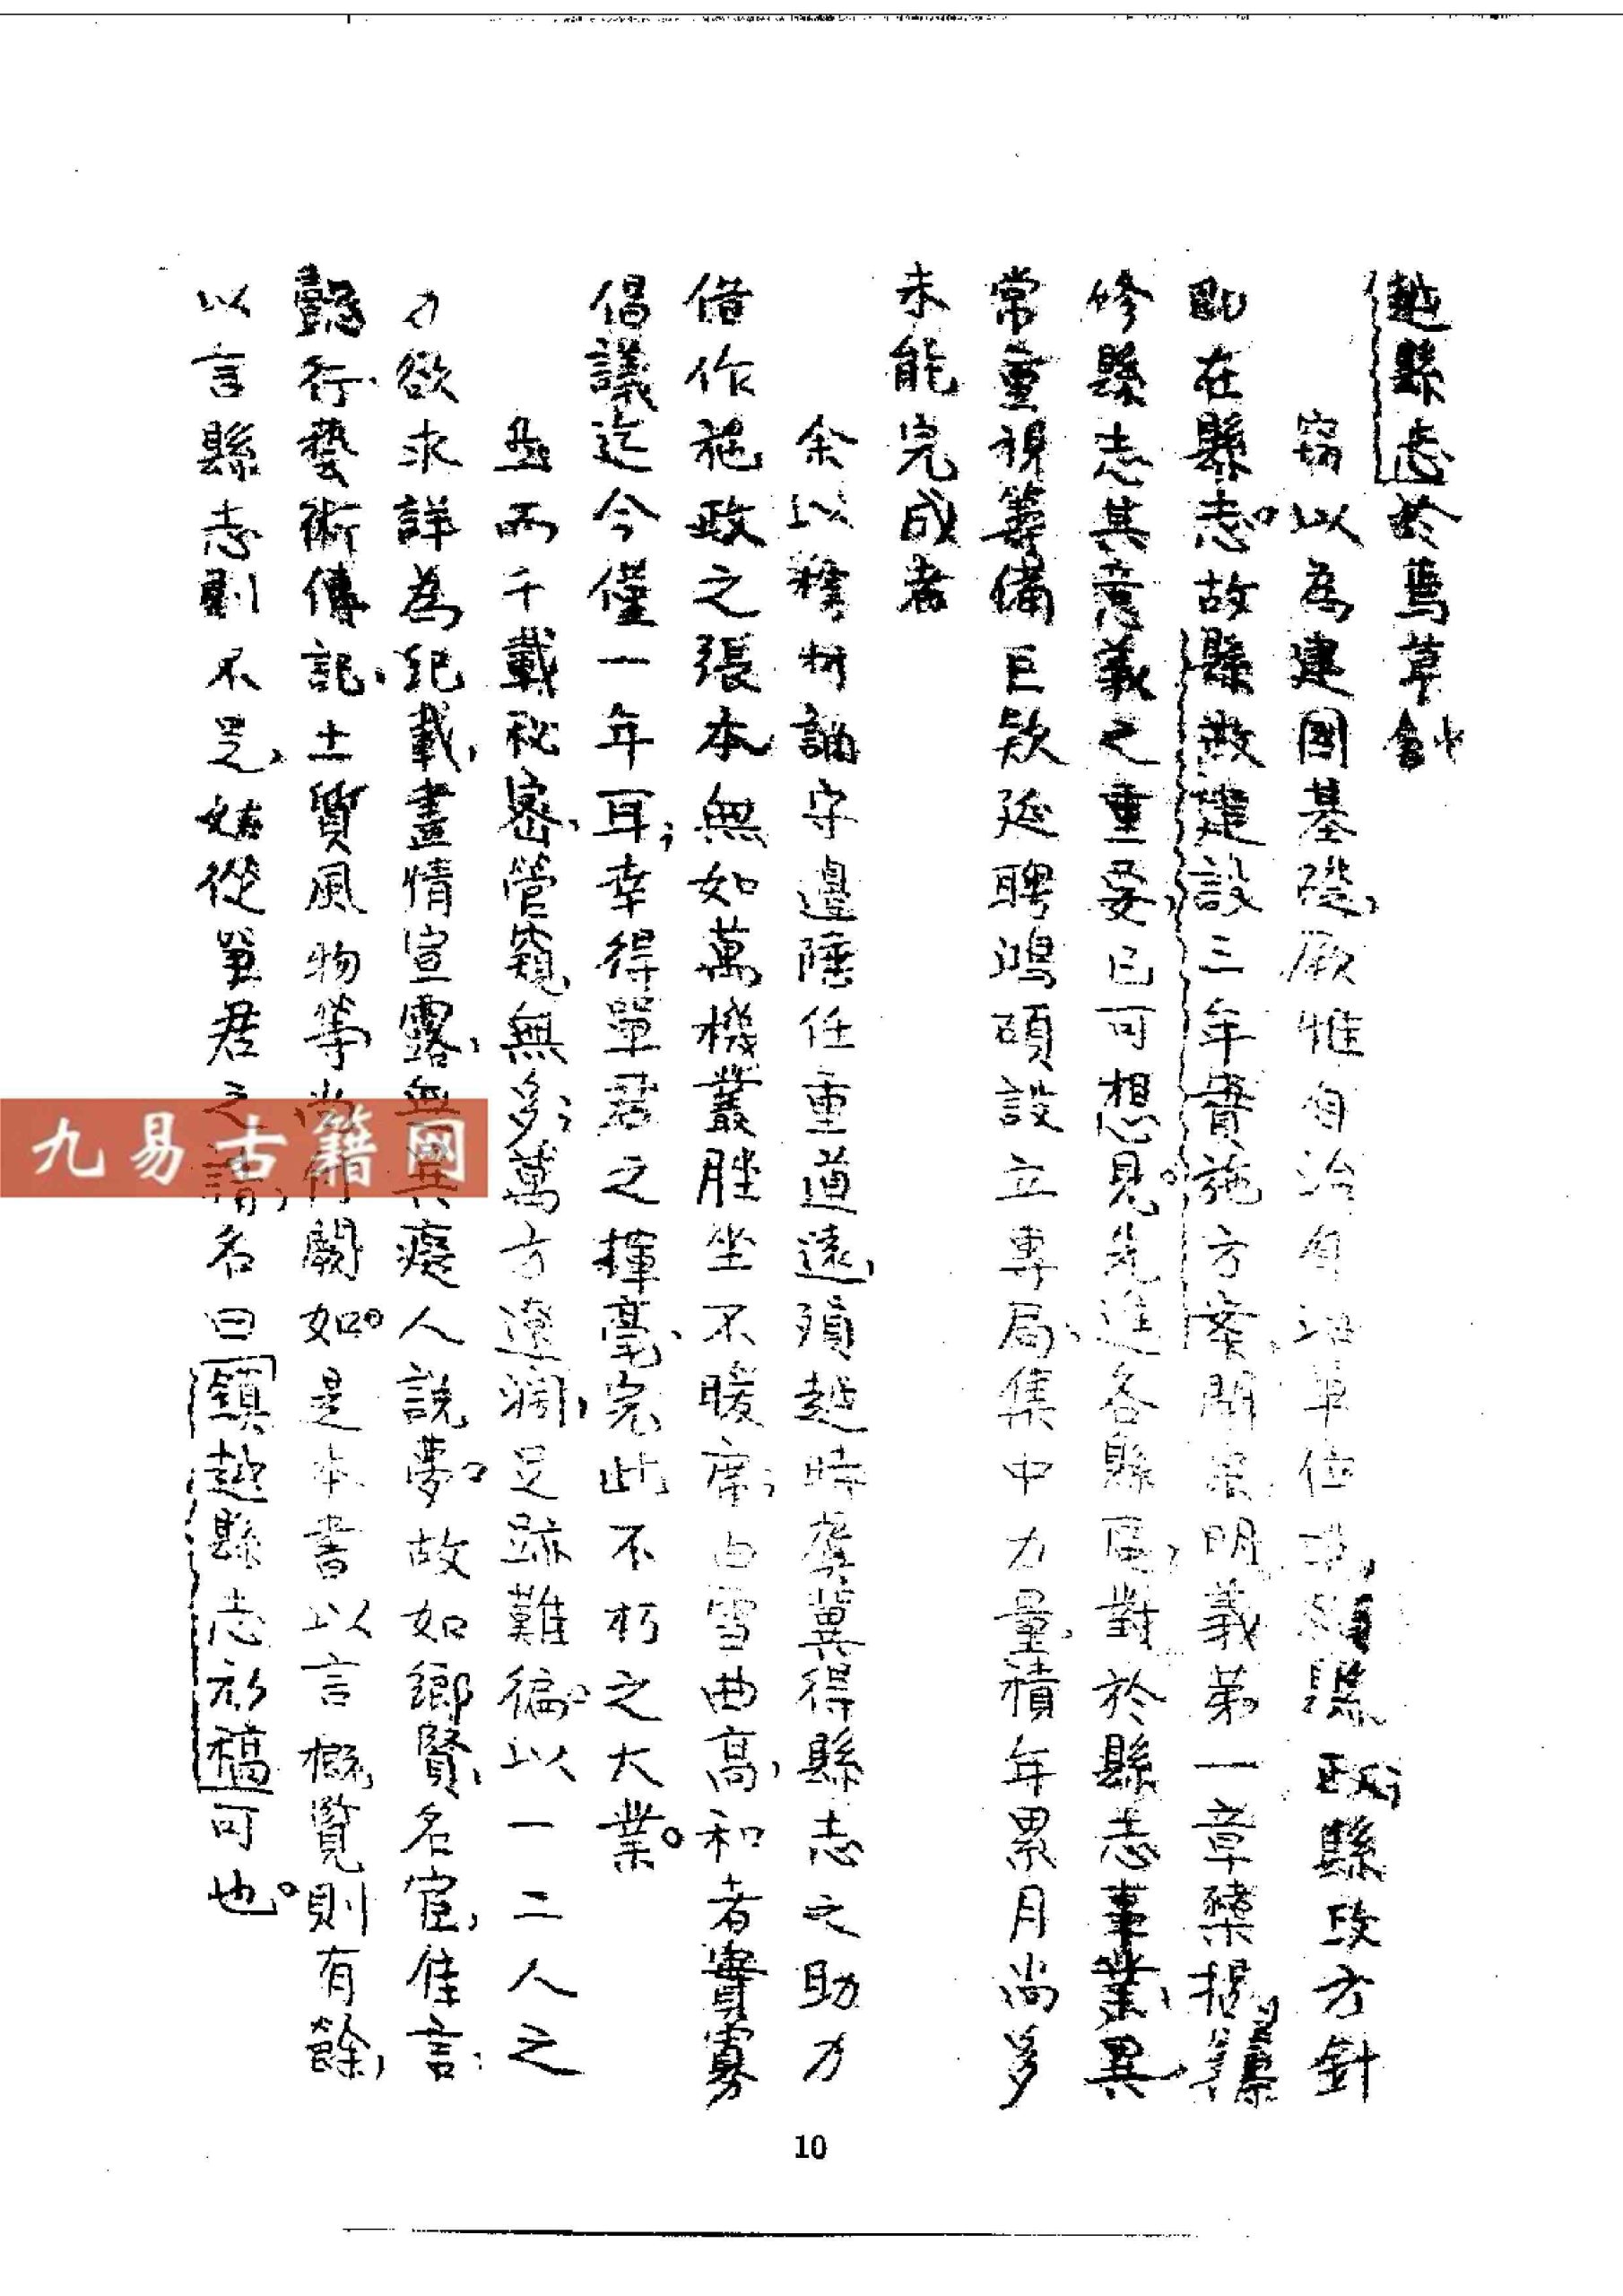 越縣志於焉草創
窃以為建國基礎，厥惟自治自治單位，縣政；縣政方針
即在縣志。故縣政建設三年實施方案開宗明義第一章藥根據
修縣志其意義之重要，已可想見。先進各縣區，對於縣志事業、異
常重視籌備巨欵延聘鴻碩設立專局、集中力量、積年累月尚多
未能完成者
余以樗材謭守邊陲任重道遠，殞越時虞冀得縣志之助力
借作施政之張本無如萬機叢脞坐不暖席；白雪曲高，和者實寡
倡議迄今僅一年耳；幸得單君之揮毫、完此不朽之大業。
並而千載秘密、管窺無多；萬方遼濶，足跡難徧。以一二人之
力欲求詳為紀載，盡情宣露、無異癡人說夢。故如鄉賢、名宦，佳言、
懿行、藝術傳記、土質風物等尚付闕如。是本書以言概覧則有餘，
以言縣志則不足，姑從單君之請，名曰鎮越縣志初稿可也。
10
九易古籍网